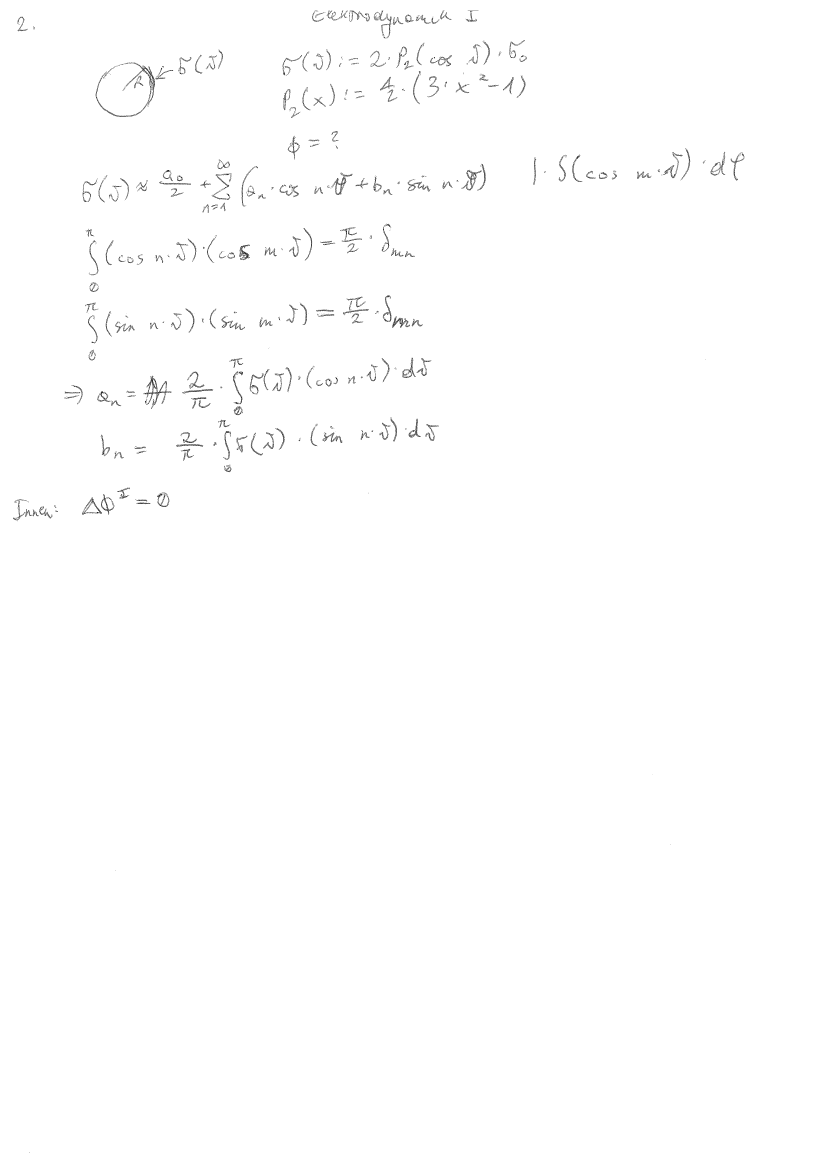 Elektrodynamik I
2.
R σ(ϑ)
σ(ϑ) := 2·P₂(cos ϑ)·σ₀
P₂(x) := 1/2·(3·x²-1)
ϕ = ?
σ(ϑ) ≈ a₀/2 + ∑_{n=1}^{∞} (aₙ·cos n·ϑ + bₙ·sin n·ϑ) |·∫(cos m·ϑ)·dφ
∫_0^π (cos n·ϑ)·(cos m·ϑ) = π/2·δ_{mn}
∫_0^π (sin n·ϑ)·(sin m·ϑ) = π/2·δ_{mn}
⇒ aₙ = 2/π·∫_0^π σ(ϑ)·(cos n·ϑ)·dϑ
bₙ = 2/π·∫_0^π σ(ϑ)·(sin n·ϑ)·dϑ
Innen: Δϕ^I = 0